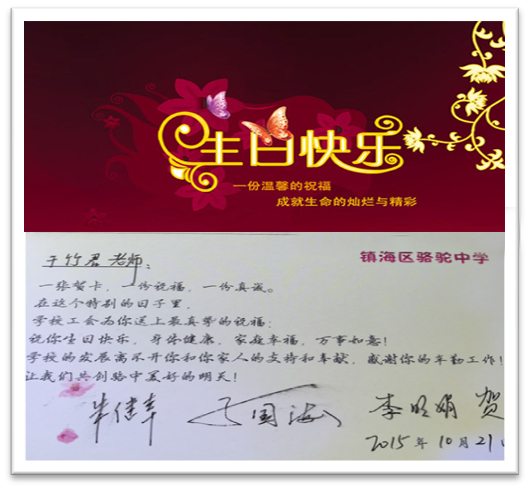 生日快乐
一份温馨的祝福
成就生命的灿烂与精彩
镇海区骆驼中学
于竹君 老师：
一张贺卡，一份祝福，一份真诚。
在这个特别的日子里，
学校工会为你送上最真挚的祝福：
祝你生日快乐，身体健康，家庭幸福，万事如意！
学校的发展离不开你和你家人的支持和奉献，感谢你的辛勤工作！
让我们共创骆中美好的明天！
李明娟 贺
2015年10月21